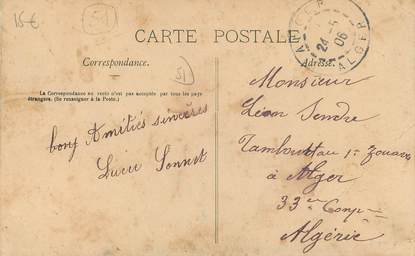 15€
51
CARTE POSTALE
ALGER
24-5
06
ALGER
Correspondance.
51
Adresse.
La Correspondance au verso n'est pas acceptée par tous les pays
étrangers. (Se renseigner à la Poste.)
Monsieur
Léon Sendre
bons Amitiés sincères
Tambour au 1er Zouaves
Lucie Sonnet
à Alger
33e Comp
Algérie